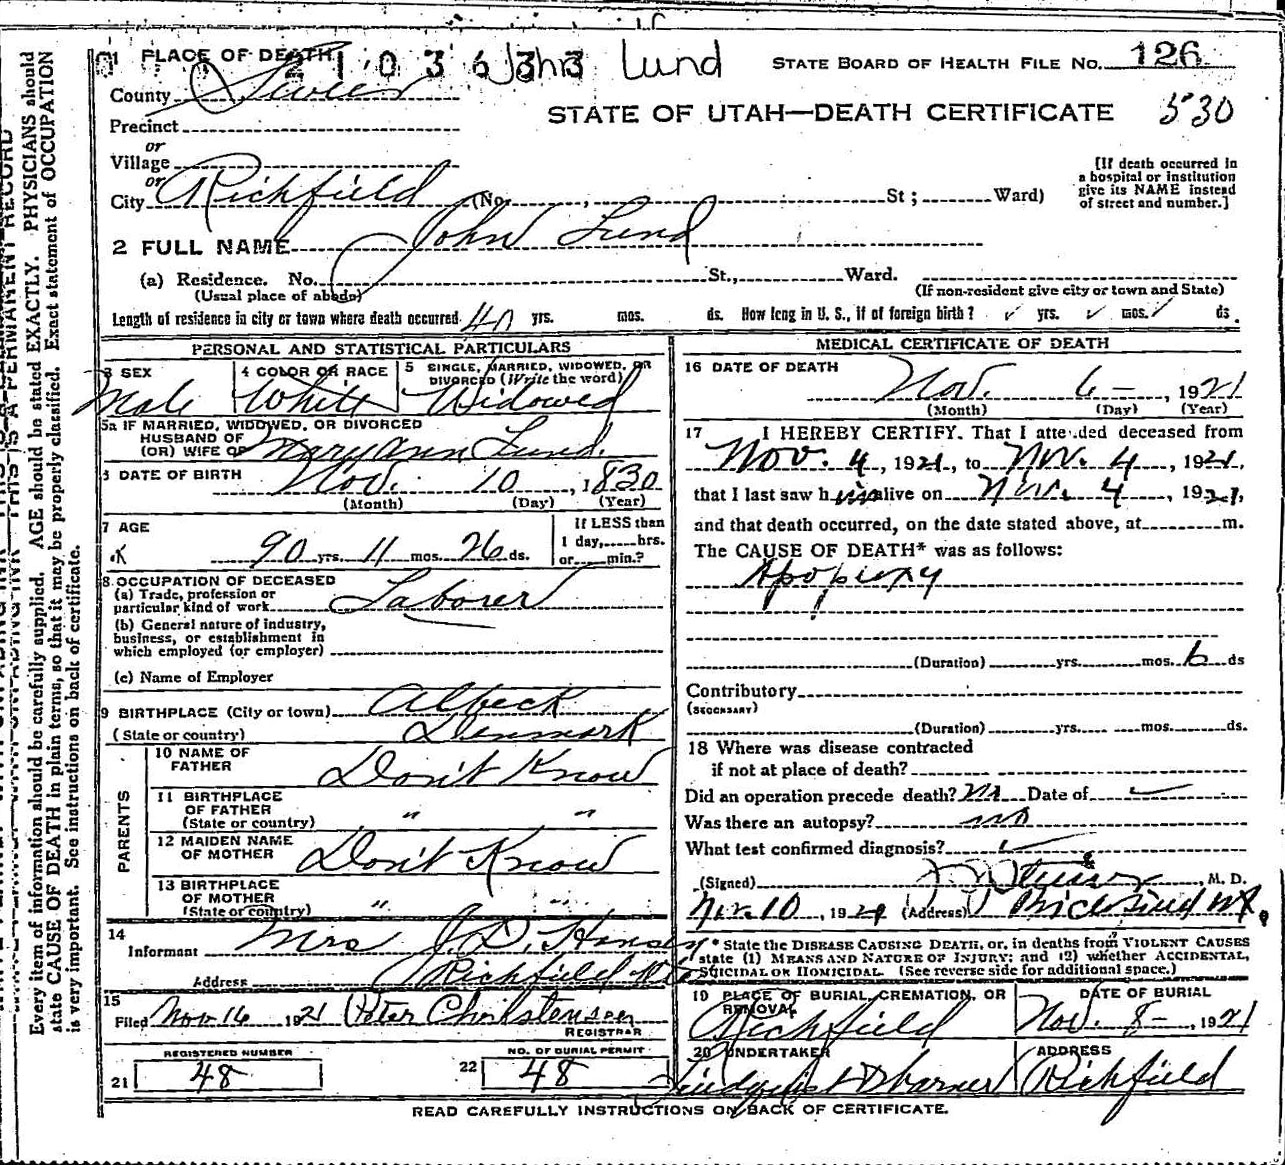 1 PLACE OF DEATH 2103633 John Lund STATE BOARD OF HEALTH FILE No. 126
County Sevier
STATE OF UTAH—DEATH CERTIFICATE 530
Precinct
or
Village
or
City Richfield (No. , St; Ward)
[If death occurred in
a hospital or institution
give its NAME instead
of street and number.]
2 FULL NAME John Lund
(a) Residence. No. St., Ward.
(Usual place of abode) (If non-resident give city or town and State)
Length of residence in city or town where death occurred 40 yrs. mos. ds. How long in U. S., if of foreign birth? ✓ yrs. ✓ mos. ✓ ds.
PERSONAL AND STATISTICAL PARTICULARS
3 SEX Male
4 COLOR OR RACE White
5 SINGLE, MARRIED, WIDOWED, OR
DIVORCED (Write the word)
Widowed
5a IF MARRIED, WIDOWED, OR DIVORCED
HUSBAND OF
(OR) WIFE OF Mary Ann Lund.
6 DATE OF BIRTH Nov. 10, 1830
(Month) (Day) (Year)
7 AGE
90 yrs. 11 mos. 26 ds.
If LESS than
1 day, hrs.
or min.?
8 OCCUPATION OF DECEASED
(a) Trade, profession or
particular kind of work Laborer
(b) General nature of industry,
business, or establishment in
which employed (or employer)
(c) Name of Employer
9 BIRTHPLACE (City or town) Albeck
(State or country) Denmark
PARENTS
10 NAME OF
FATHER Don't Know
11 BIRTHPLACE
OF FATHER
(State or country) " "
12 MAIDEN NAME
OF MOTHER Don't Know
13 BIRTHPLACE
OF MOTHER
(State or country) " "
14
Informant Mrs J. D. Hansen
Address Richfield Ut
15
Filed Nov 16 1921 Peter Christensen
REGISTRAR
REGISTERED NUMBER
21 48
NO. OF BURIAL PERMIT
22 48
MEDICAL CERTIFICATE OF DEATH
16 DATE OF DEATH
Nov. 6-, 1921
(Month) (Day) (Year)
17 I HEREBY CERTIFY. That I attended deceased from
Nov. 4, 1921, to Nov. 4, 1921,
that I last saw him alive on Nov. 4, 1921,
and that death occurred, on the date stated above, at m.
The CAUSE OF DEATH* was as follows:
Apoplexy
(Duration) yrs. mos. 6 ds
Contributory
(SECONDARY)
(Duration) yrs. mos. ds.
18 Where was disease contracted
if not at place of death?
Did an operation precede death? no Date of ✓
Was there an autopsy? no
What test confirmed diagnosis? ✓
(Signed) , M. D.
Nov. 10, 1921 (Address) Richfield Ut.
* State the DISEASE CAUSING DEATH, or, in deaths from VIOLENT CAUSES
state (1) MEANS AND NATURE OF INJURY; and (2) whether ACCIDENTAL,
SUICIDAL OR HOMICIDAL. (See reverse side for additional space.)
19 PLACE OF BURIAL, CREMATION, OR
REMOVAL
Richfield
DATE OF BURIAL
Nov. 8-, 1921
20 UNDERTAKER
Lindquist & Warner
ADDRESS
Richfield
READ CAREFULLY INSTRUCTIONS ON BACK OF CERTIFICATE.
Every item of information should be carefully supplied. AGE should be stated EXACTLY. PHYSICIANS should
state CAUSE OF DEATH in plain terms, so that it may be properly classified. Exact statement of OCCUPATION
is very important. See instructions on back of certificate.